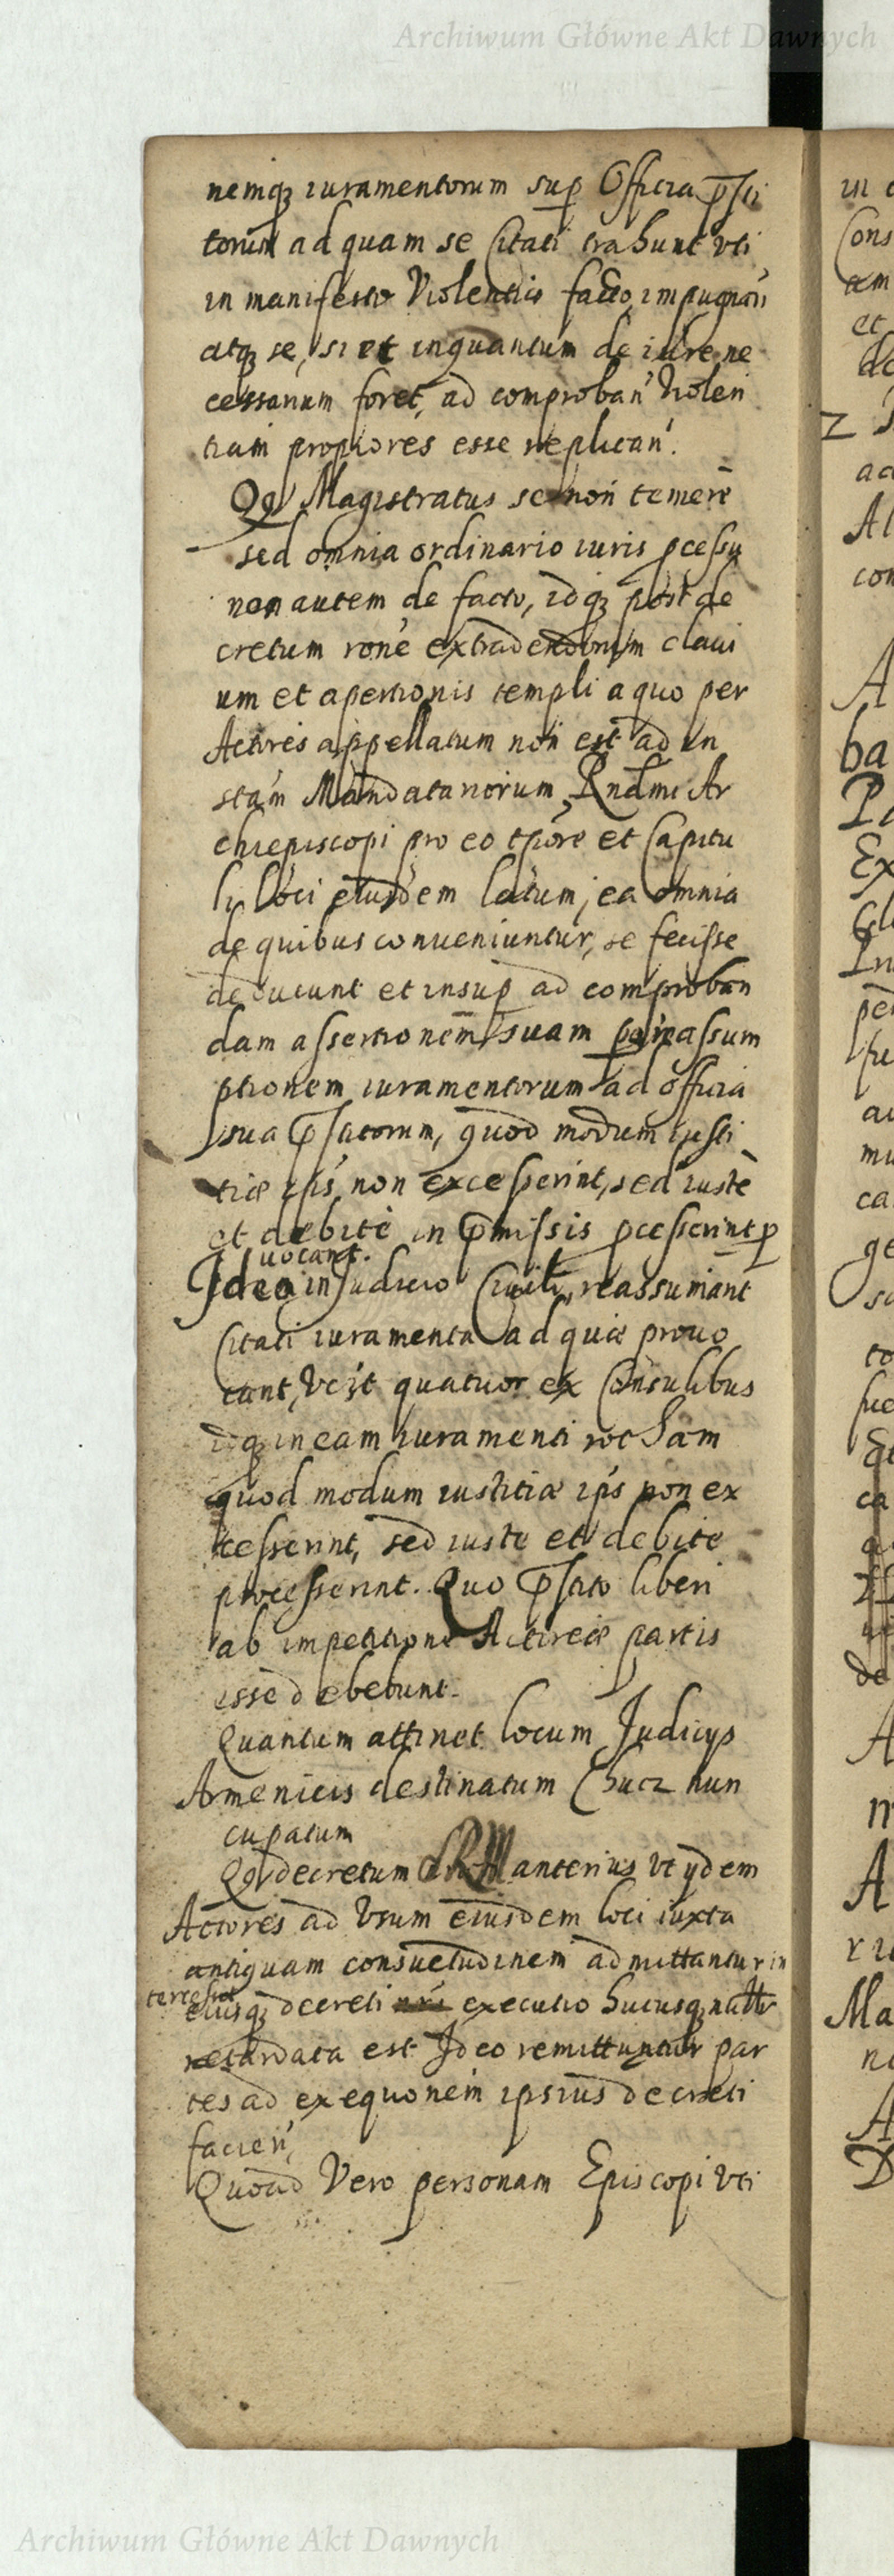 Archiwum Główne Akt Dawnych
nemq₃ iuramentorum sup Officia p̄sti
torum ad quam se Citati trahunt vti
in manifesto Violentiis facto impugnan̄
atq₃ se, si et inquantum de iure ne
cessarium foret, ad comproban' Violen
tiam propiores esse replican'.
Qd Magistratus se non temerè
sed omnia ordinario iuris pcessu
non autem de facto, idq₃ post de
cretum rone extradendorum claui
um et apertionis templi a quo per
Actores appellatum non est ad in
stam Mandatariorum Rndmi Ar
chiepiscopi pro eo tpore et Capitu
li loci eiusdem latum, ea omnia
de quibus conueniuntur, se fecisse
deducunt et insup ad comproban
dam assertionem suam per reassum
ptionem iuramentorum ad officia
sua p̄statorum, quod modum iusti
tiæ ipsi non excesserint, sed iustè
et debitè in p̄missis pcesserint p
uocant.
Ideo in Judicio Ciuili, reassumant
Citati iuramenta ad quæ prouo
cant, Vczt quatuor ex Consulibus
idq₃ in eam iuramenti rotham
quod modum iustitiæ ipsi non ex
cesserint, sed iuste et debite
processerint. Quo p̄stito liberi
ab impetitione Actoreæ partis
esse debebunt.
Quantum attinet locum Judicijs
Armenicis destinatum Chucz nun
cupatum
Qd decretum SRM anterius vt ijdem
Actores ad Vsum eiusdem loci iuxta
antiquam consuetudinem admittantur in
tercessit
eiusq₃ decreti executio hucusq₃
retardata est Ideo remittuntur par
tes ad exequonem ipsius decreti
facien'
Quoad Vero personam Episcopi vti
in
Cons
am
et
de
Z
ad
Al
con
A
ba
Ex
In
mu
ca
ge
to
ca
de
A
A
Ma
A
D
Archiwum Główne Akt Dawnych